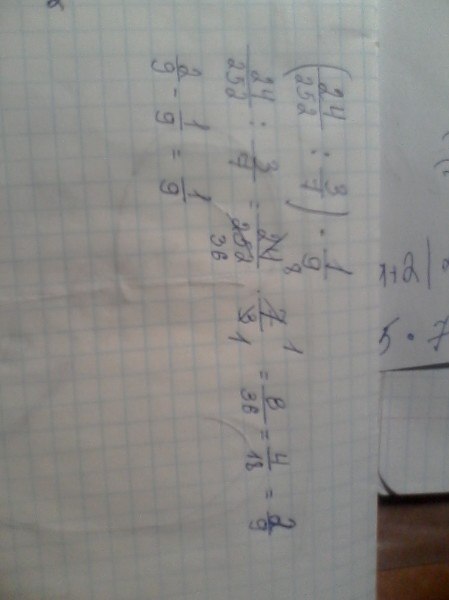 (24/252 : 3/7) - 1/9
24/252 : 3/7 = 24 8/252 36 · 7 1/3 1 = 8/36 = 4/18 = 2/9
2/9 - 1/9 = 1/9
5 · 7